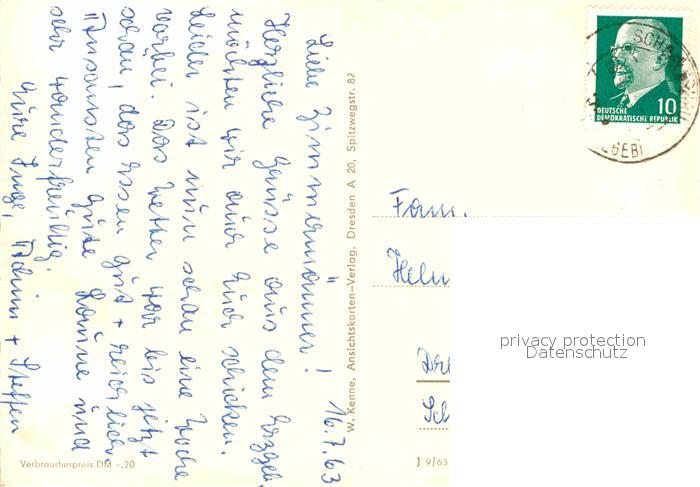 16.7.63
Liebe Zimmermänner!
Herzliche Grüsse aus dem Erzgeb.
möchten wir auch Euch schicken.
Leider ist nun schon eine Woche
vorbei. Das Wetter war bis jetzt
schön, das Essen gut + reichlich.
Ansonsten gute Laune und
sehr wanderfreudig.
Eure Inge, Achim + Steffen
W. Kenne, Ansichtskarten-Verlag, Dresden A 20, Spitzwegstr. 82
Verbraucherpreis DM -.20
J 9/63
10
DEUTSCHE
DEMOKRATISCHE REPUBLIK
Fam.
Helm
Dre
Sch
privacy protection
Datenschutz